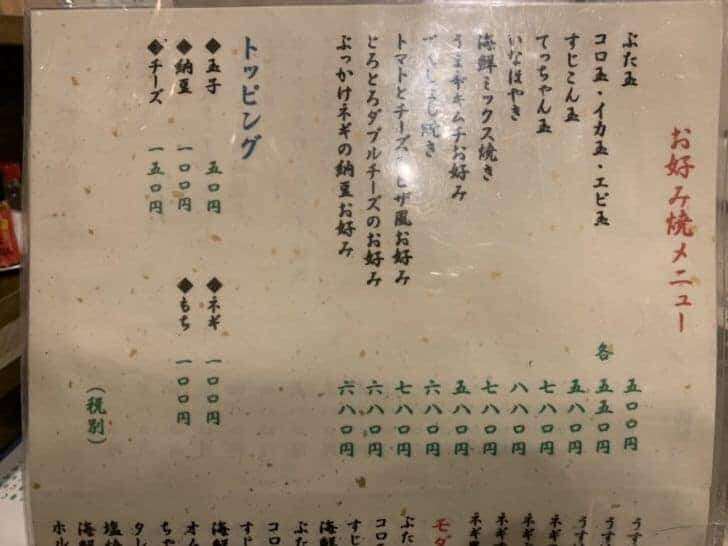 お好み焼メニュー
ぶた玉 五〇〇円
コロ玉・イカ玉・エビ玉 各 五五〇円
すじこん玉 五八〇円
てっちゃん玉 七八〇円
いなほやき 八八〇円
海鮮ミックス焼き 七八〇円
キムチお好み 五八〇円
焼き 六八〇円
トマトとチーズのピザ風お好み 七八〇円
とろとろダブルチーズのお好み 六八〇円
ぶっかけネギの納豆お好み 六八〇円
トッピング
◆玉子 五〇円
◆ネギ 一〇〇円
◆納豆 一〇〇円
◆もち 一〇〇円
◆チーズ 一五〇円
（税別）
うす
うす
うす
ネギ
ネギ
ネギ
ネギ
モダ
ぶた
コロ
すじ
海鮮
ぶた
コロ
すじ
海鮮
オム
ちゃ
タレ
塩焼
海鮮
ホル